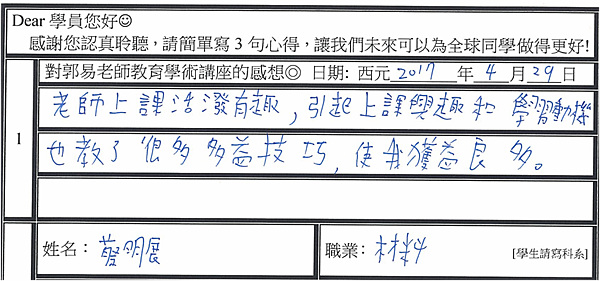 Dear 學員您好☺
感謝您認真聆聽，請簡單寫 3 句心得，讓我們未來可以為全球同學做得更好!
對郭易老師教育學術講座的感想◎ 日期: 西元 2017 年 4 月 29 日
1
老師上課活潑有趣，引起上課興趣和學習動機
也教了很多多益技巧，使我獲益良多。
姓名： 明展
職業： 材料 [學生請寫科系]